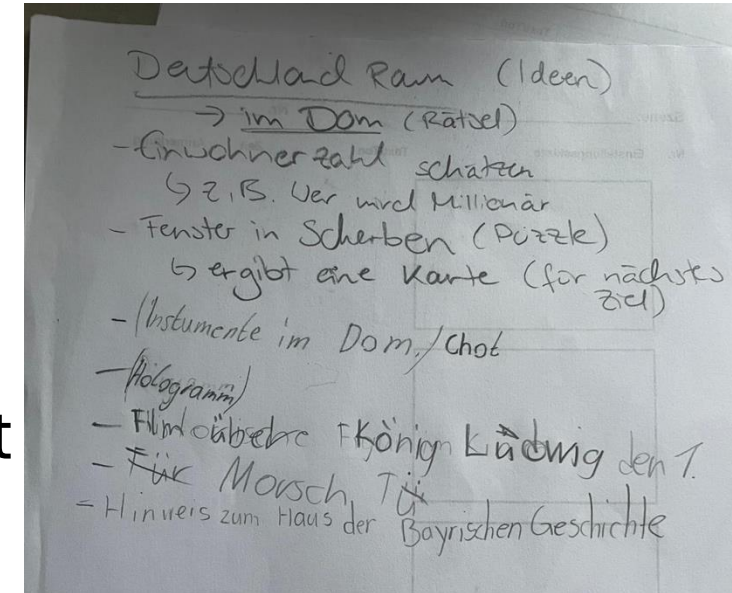 Deutschland Raum (Ideen)
→ im Dom (Rätsel)
- Einwohnerzahl schätzen
↳ z.B. Wer wird Millionär
- Fenster in Scherben (Puzzle)
↳ ergibt eine Karte (für nächstes Ziel)
- (Instumente im Dom./Chot
- (Hologramm)
- Film König Ludwig den 1.
- Für Morsch
- Hinweis zum Haus der Bayrischen Geschichte
t